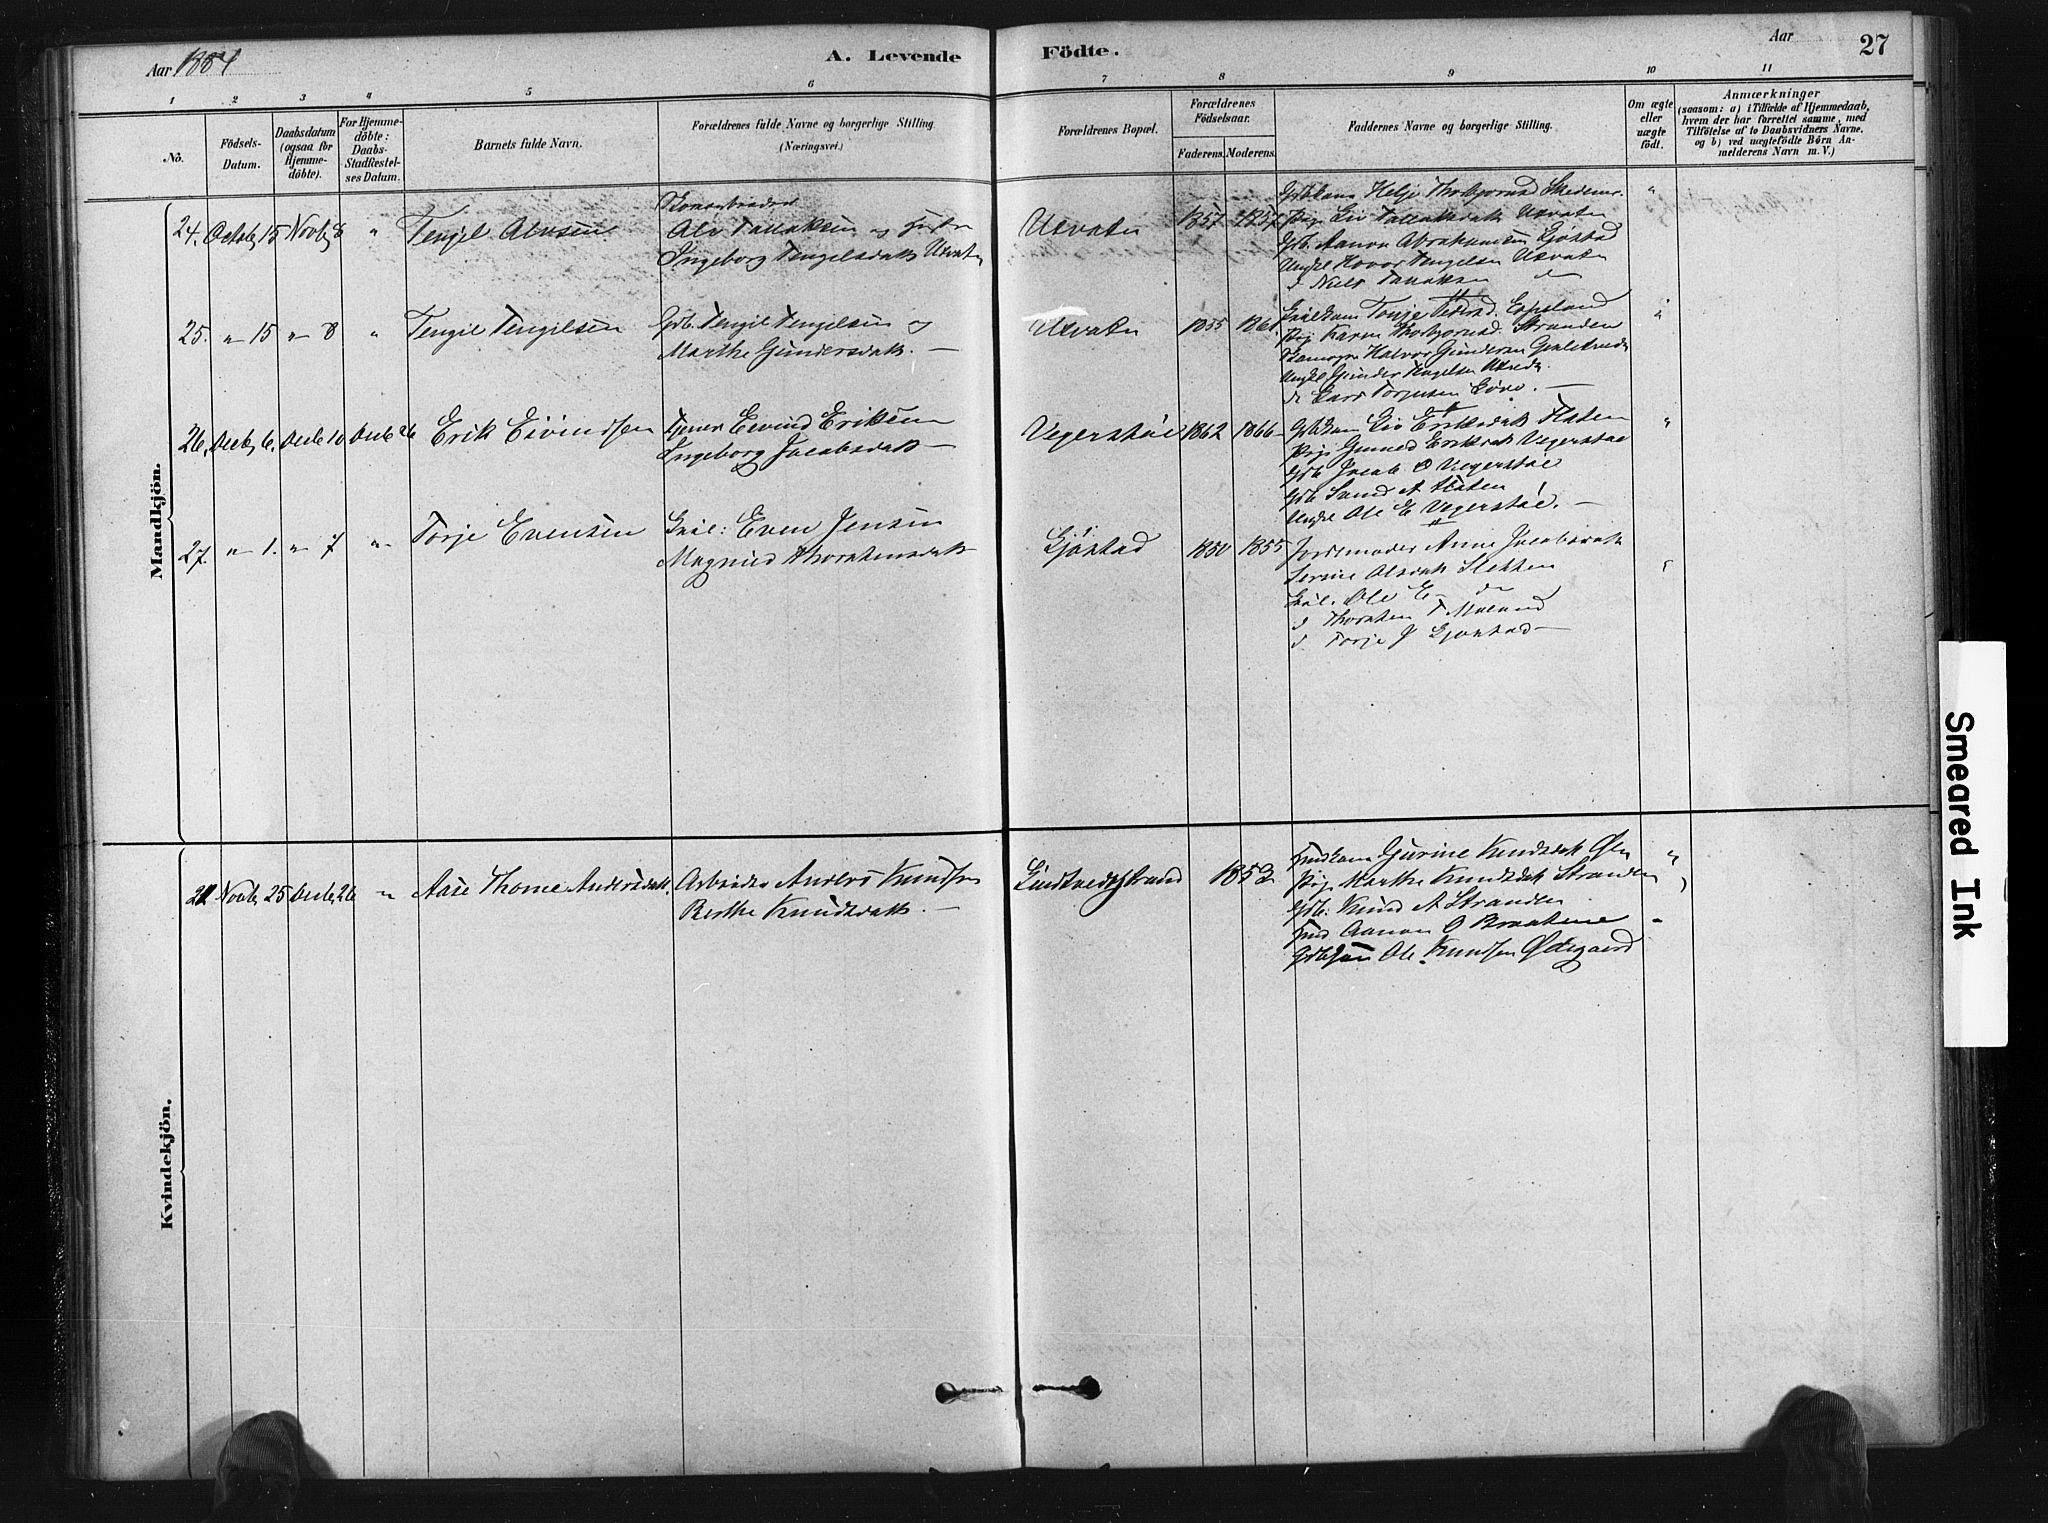 Aar 1884
A. Levende Födte.
Aar
27
1 2 3 4 5 6 7 8 9 10 11
No.
Födsels-Datum.
Daabsdatum (ogsaa for Hjemme-döbte).
For Hjemme-döbte: Daabs-Stadfæstel-ses Datum.
Barnets fulde Navn.
Forældrenes fulde Navne og borgerlige Stilling.
(Næringsvei.)
Forældrenes Bopæl.
Forældrenes Födselsaar.
Faderens. Moderens.
Faddernes Navne og borgerlige Stilling.
Om ægte eller uægte födt.
Anmærkninger
(saasom: a) i Tilfælde af Hjemmedaab,
hvem der har forrettet samme, med
Tilföielse af to Daabsvidners Navne,
og b) ved uægtefödte Börn An-
melderens Navn m. V.)
Mandkjön.
24. Octob 15 Novb 8 " Tengel Alvsen
Alv Tallaksen og Hustru
Ingeborg Tengelsdatt Uxvatn
Uxvatn 1857 1857
Helje Thorbjørnsd
Pige Liv Tallaksdatt Uxvatn
Gdb. Aanon Abrahamsen Gjøstad
Ungkl Hovor Tengelsen Uxvatn
d Niels Tallaksen do
25. " 15 " 8 " Tengil Tengilsen
Gdb. Tengil Tengilsen og
Marthe Gundersdatt. —
Uxvatn 1855 1861
Tonje Pedersd. Espeland
Pig Karen Thorbjørnsd. Stranden
Halvor Gundersen
Ungkl Gunder Tengelsen
d. Lars Torjusen
26. Decb 6. Decb 10 Decb 26 Erik Eivindsen
Eivind Eriksen
Ingeborg Jacobsdatt —
Vegerstöl 1862 1866
Liv Eriksdatt Flaten
Pige Gunned Eriksdatt Vegerstöl
Gdb Jacob O Vegerstöl
Gdb Sand A Flaten
Ungkl Ole E Vegerstöl. —
27. " 1. " 7 " Torje Evensen
Even Jensen
Magnild Thorstensdatt
Gjöstad 1850 1855
Jordemoder Anne Jacobsdatt
Serine Olsdatt Sletten
Ole E — do
d Thorsten T
d. Torje J Gjöstad —
Kvindekjön.
Novb 25 Decb 26 " Aase Thonie Andersdatt.
Arbeider Anders Knudsen
Berthe Knudsdatt. —
Lindtvedtstrand 1853
Gurine Knudsdatt
Pige Marthe Knudsdatt Stranden
Gdb. Knud A Stranden
Aanon O Braatene
Ole Knudsen Ødegaard
Smeared Ink